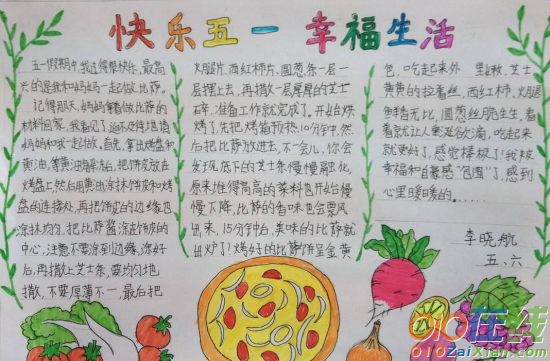 快乐五一 幸福生活
五一假期中,我过得很快乐,最高
兴的是我和妈妈一起做比萨。
记得那天,妈妈拿着做比萨的
材料回家,我看见了,迫不及待地猜
妈妈和我一起做。首先,拿出烤盘和
黄油,等黄油解冻后,把饼皮放在
烤盘上,然后用黄油涂抹饼皮和烤
盘的连接处,再把饼皮的边缘也
涂抹均匀,把比萨酱涂在饼皮的
中心,注意不要涂到边缘,涂好
后,再撒上芝士条,要均匀地
撒,不要厚薄不一,最后把
火腿片、西红柿片、圆葱条一层一
层摆上去,再撒一层厚厚的芝士
碎,准备工作就完成了。开始烘
烤了,先把烤箱预热10分钟,然
后把比萨放进去,不一会儿,你会
发现底下的芝士条慢慢融化,
原来堆得高高的菜料也开始慢
慢下降,比萨的香味也会飘
出来,15分钟后,美味的比萨就
出炉了!烤好的比萨饼呈金黄
色,吃起来外 里软,芝士
黄黄的拉着丝,西红柿、火腿
鲜香无比,圆葱丝脆生生,看
着就让人垂涎欲滴,吃起来
就更好了,感觉棒极了!我被
幸福和自豪感“包围”了,感到
心里暖暖的……
李晓航
五、六
010在线
010ZaiXian.com